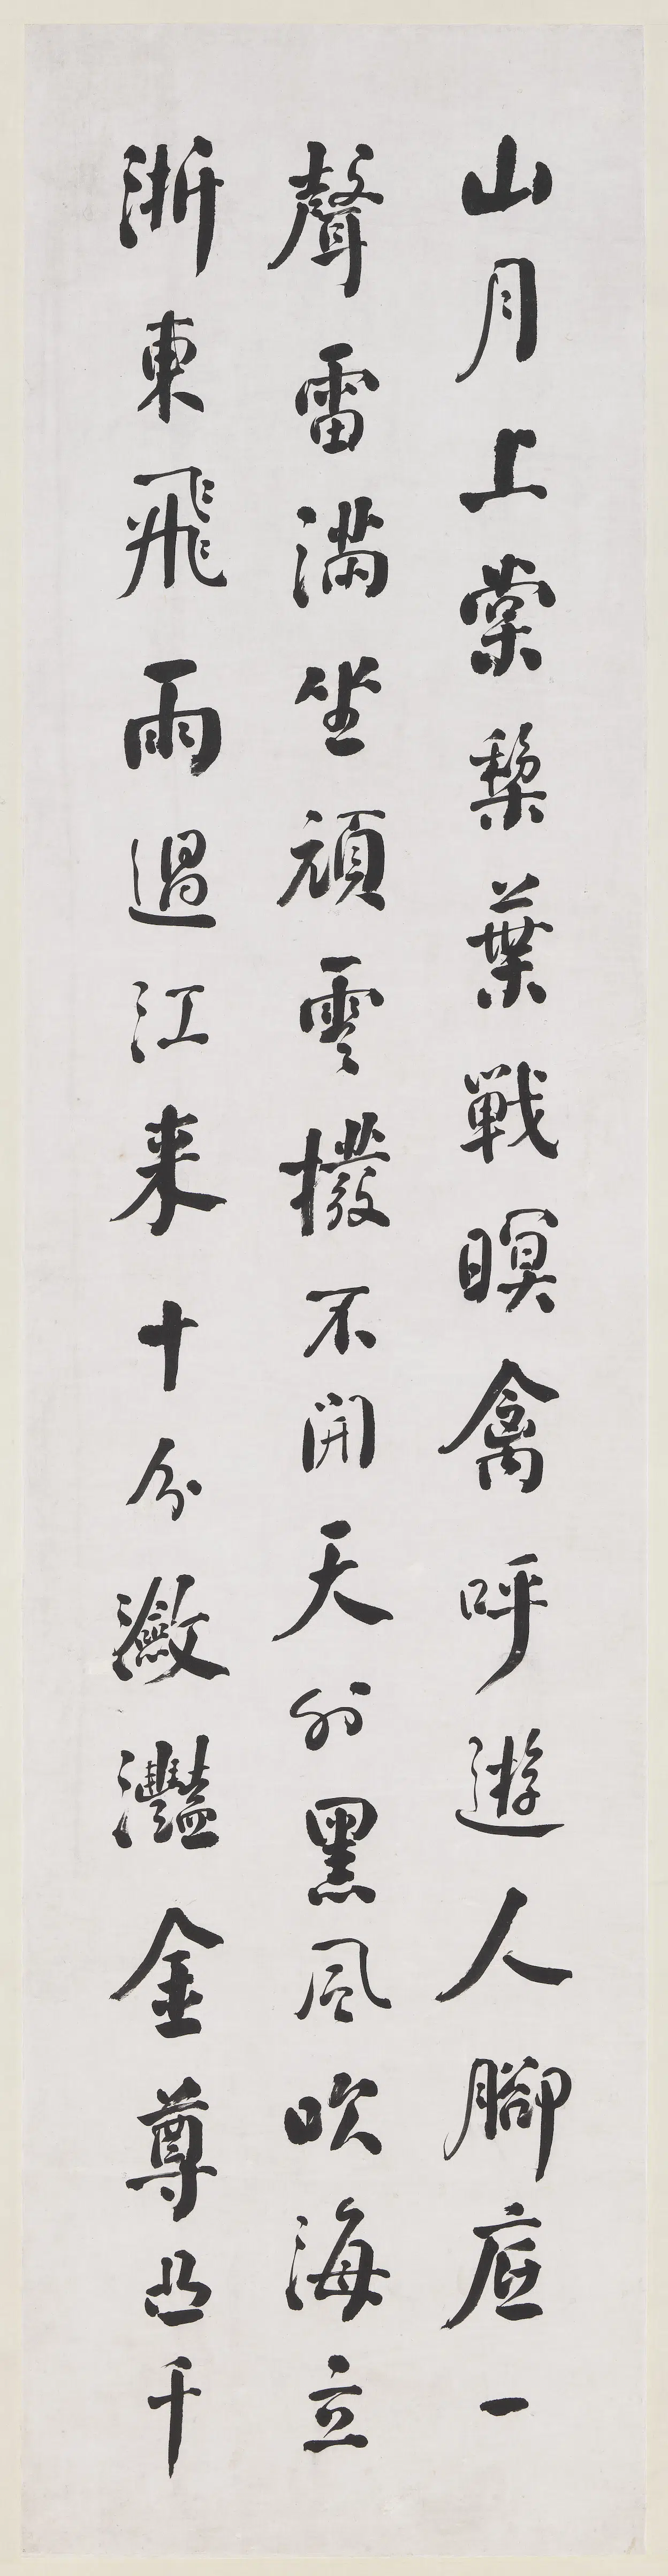 山月上棠棃葉戰暝禽呼遊人腳底一
聲雷滿坐頑雲撥不開天外黑風吹海立
浙東飛雨過江来十分瀲灩金尊凸千